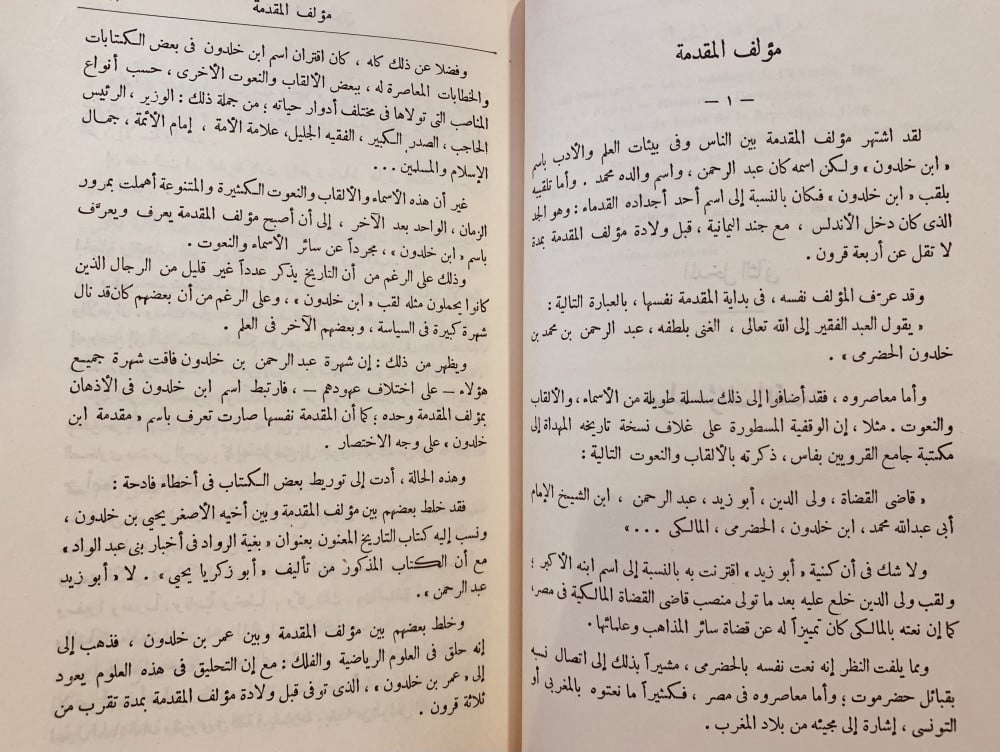 مؤلف المقدمة
— ١ —
لقد اشتهر مؤلف المقدمة بين الناس وفى بيئات العلم والأدب باسم
« ابن خلدون » ولكن اسمه كان عبد الرحمن ، واسم والده محمد . وأما تلقيبه
بلقب « ابن خلدون » فكان بالنسبة إلى اسم أحد أجداده القدماء : وهو الجد
الذى كان دخل الأندلس ، مع جند اليمانية ، قبل ولادة مؤلف المقدمة بمدة
لا تقل عن أربعة قرون .
وقد عرّف المؤلف نفسه ، فى بداية المقدمة نفسها ، بالعبارة التالية :
« يقول العبد الفقير إلى الله تعالى ، الغنى بلطفه ، عبد الرحمن بن محمد بن
خلدون الحضرمى » .
وأما معاصروه ، فقد أضافوا إلى ذلك سلسلة طويلة من الأسماء ، والألقاب
والنعوت . مثلا ، إن الوقفية المسطورة على غلاف نسخة تاريخه المهداة إلى
مكتبة جامع القرويين بفاس ، ذكرته بالألقاب والنعوت التالية :
« قاضى القضاة ، ولى الدين ، أبو زيد ، عبد الرحمن ، ابن الشيخ الإمام
أبى عبدالله محمد ، ابن خلدون ، الحضرمى ، المالكى ... »
ولا شك فى أن كنية « أبو زيد » اقترنت به بالنسبة إلى اسم ابنه الأكبر ؛
ولقب ولى الدين خلع عليه بعد ما تولى منصب قاضى القضاة المالكية فى مصر ،
كما إن نعته بالمالكى كان تمييزاً له عن قضاة سائر المذاهب وعلمائها .
ومما يلفت النظر إنه نعت نفسه بالحضرمى ، مشيراً بذلك إلى اتصال نسبه
بقبائل حضرموت ؛ وأما معاصروه فى مصر ، فكثيراً ما نعتوه بالمغربى أو
التونسى ، إشارة إلى مجيئه من بلاد المغرب .
مؤلف المقدمة
وفضلا عن ذلك كله ، كان اقتران اسم ابن خلدون فى بعض الكتابات
والخطابات المعاصرة له ، ببعض الألقاب والنعوت الأخرى ، حسب أنواع
المناصب التى تولاها فى مختلف أدوار حياته ؛ من جملة ذلك : الوزير ، الرئيس
الحاجب ، الصدر الكبير ، الفقيه الجليل ، علامة الأمة ، إمام الأئمة ، جمال
الإسلام والمسلمين ...
غير أن هذه الأسماء والألقاب والنعوت الكثيرة والمتنوعة أهملت بمرور
الزمان ، الواحد بعد الآخر ، إلى أن أصبح مؤلف المقدمة يعرف ويعرَّف
باسم « ابن خلدون » ، مجرداً عن سائر الأسماء والنعوت .
وذلك على الرغم من أن التاريخ يذكر عدداً غير قليل من الرجال الذين
كانوا يحملون مثله لقب « ابن خلدون » ، وعلى الرغم من أن بعضهم كان قد نال
شهرة كبيرة فى السياسة ، وبعضهم الآخر فى العلم .
ويظهر من ذلك : إن شهرة عبد الرحمن بن خلدون فاقت شهرة جميع
هؤلاء — على اختلاف عهودهم — ، فارتبط اسم ابن خلدون فى الأذهان
بمؤلف المقدمة وحده ؛ كما أن المقدمة نفسها صارت تعرف باسم « مقدمة ابن
خلدون » على وجه الاختصار .
وهذه الحالة ، أدت إلى توريط بعض الكتاب فى أخطاء فادحة :
فقد خلط بعضهم بين مؤلف المقدمة وبين أخيه الأصغر يحيي بن خلدون ،
ونسب إليه كتاب التاريخ المعنون بعنوان « بغية الرواد فى أخبار بنى عبد الواد »
مع أن الكتاب المذكور من تأليف « أبو زكريا يحيي » . لا « أبو زيد
عبد الرحمن » .
وخلط بعضهم بين مؤلف المقدمة وبين عمر بن خلدون ، فذهب إلى
إنه حلق فى العلوم الرياضية والفلك : مع إن التحليق فى هذه العلوم يعود
إلى « عمر بن خلدون » ، الذى توفى قبل ولادة مؤلف المقدمة بمدة تقرب من
ثلاثة قرون .